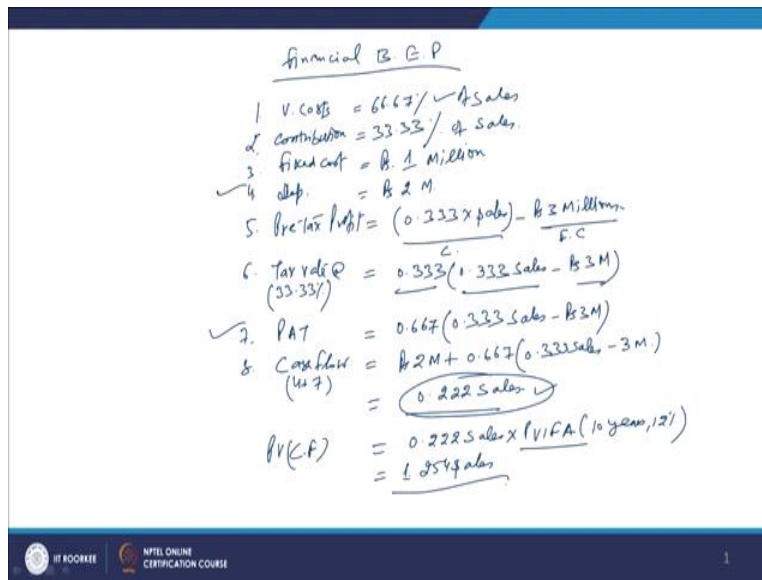 financial B.E.P
1 V. Costs = 66.67% ✓ of Sales
2. Contribution = 33.33% of Sales.
3. fixed cost = Rs. 1 Million
4 dep. = Rs 2 M.
5. Pre-Tax Profit = (0.333 x sales) - Rs 3 Millions.
C. F.C
6. Tax rate @ = 0.333 (1.333 Sales - Rs 3M)
(33.33%)
7. PAT = 0.667 (0.333 Sales - Rs 3M)
8. Cash flow = Rs 2M + 0.667 (0.333 Sales - 3 M.)
(4+7)
= 0.222 Sales ✓
PV(C.F) = 0.222 Sales x PVIFA (10 years, 12%)
= 1.254 Sales
IIT ROORKEE
NPTEL ONLINE
CERTIFICATION COURSE
1